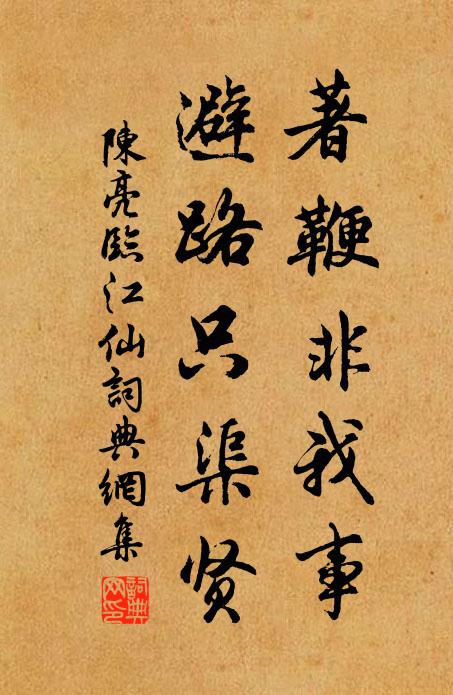 著鞭非我事
避路只渠贤
陳亮臨江仙詞典網集
詞典網印